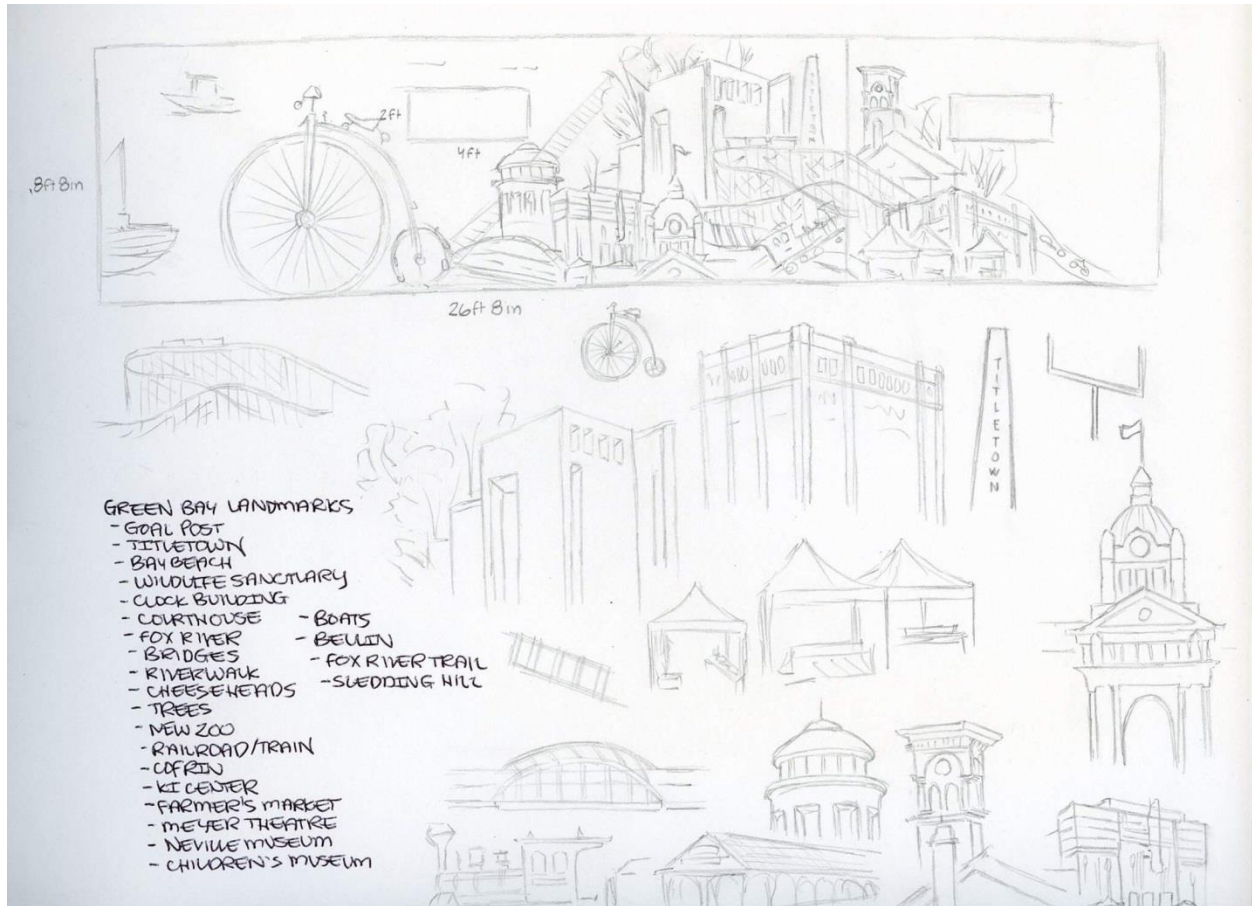 2ft
4ft
TITLETOWN
8ft 8in
26ft 8in
TITLETOWN
GREEN BAY LANDMARKS
- GOAL POST
- TITLETOWN
- BAY BEACH
- WILDLIFE SANCTUARY
- CLOCK BUILDING
- COURTHOUSE
- FOX RIVER
- BRIDGES
- RIVERWALK
- CHEESEHEADS
- TREES
- NEW ZOO
- RAILROAD/TRAIN
- COFRIN
- KI CENTER
- FARMER'S MARKET
- MEYER THEATRE
- NEVILLE MUSEUM
- CHILDREN'S MUSEUM
- BOATS
- BELLIN
- FOX RIVER TRAIL
- SLEDDING HILL